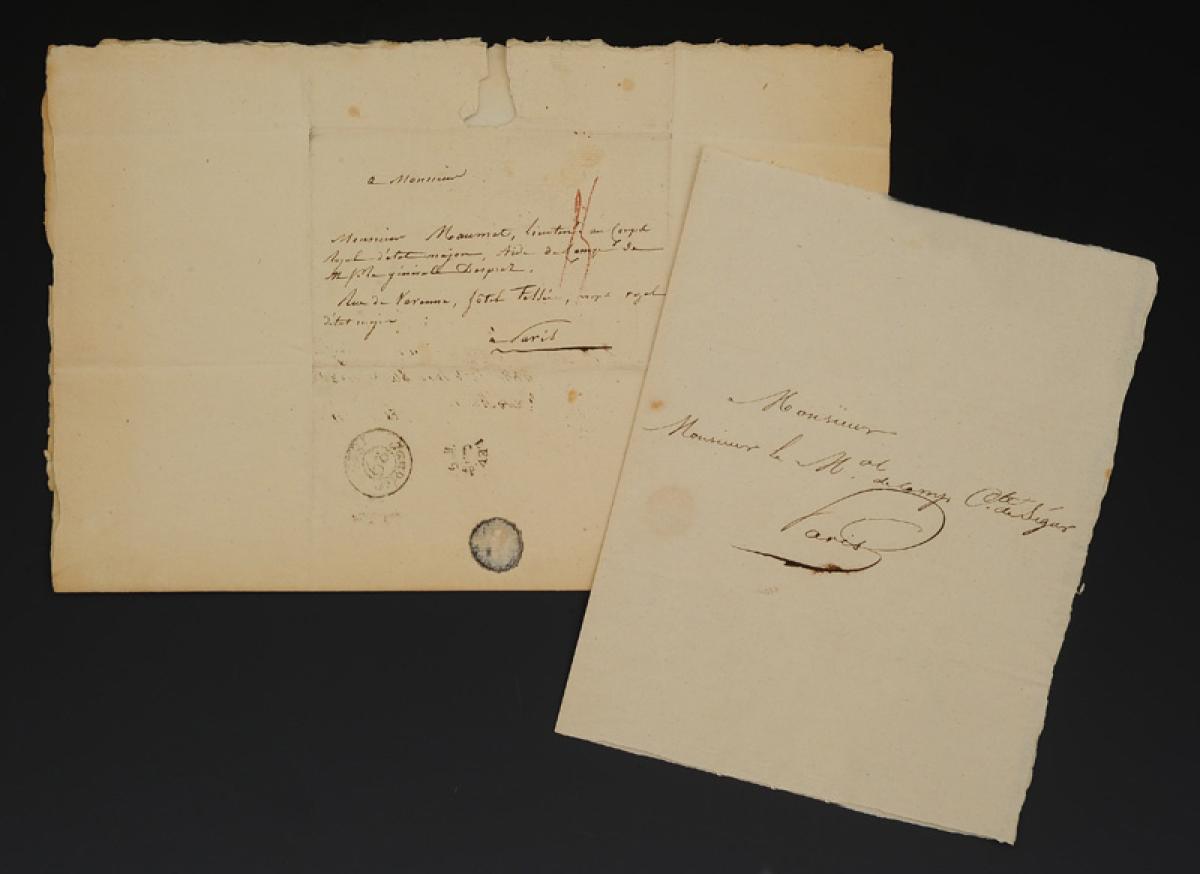 a Monsieur
Monsieur Maumet, lieutent au Corps
Royal d'état major, Aide de Camp de
Mr le général Desprez,
Rue de Varenne, hôtel Tessé, corps royal
d'état major
à Paris
a Monsieur
Monsieur le M.al
de Camp Cte
de Ségur
Paris